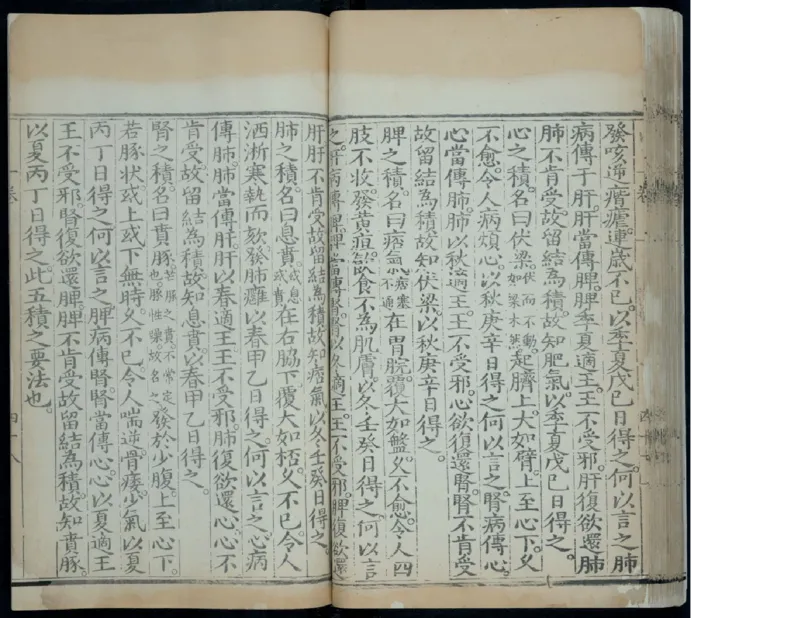 發咳逆痎瘧連歲不已以季夏戊己日得之何以言之肺
病傳于肝肝當傳脾脾季夏適王王不受邪肝復欲還肺
肺不肯受故留結為積故知肥氣以季夏戊己日得之
心之積名曰伏梁伏而不動如梁木然起臍上大如臂上至心下久
不愈令人病煩心以秋庚辛日得之何以言之腎病傳心
心當傳肺肺以秋適王王不受邪心欲復還腎腎不肯受
故留結為積故知伏梁以秋庚辛日得之
脾之積名曰痞氣痞塞不通在胃脘覆大如盤久不愈令人四
肢不收發黃疸飲食不為肌膚以冬壬癸日得之何以言
之肝病傳脾脾當傳腎腎以冬適王王不受邪脾復欲還
肝肝不肯受故留結為積故知痞氣以冬壬癸日得之
肺之積名曰息賁或息或賁在右脇下覆大如桮久不已令人
洒淅寒熱而欬發肺癰以春甲乙日得之何以言之心病
傳肺肺當傳肝肝以春適王王不受邪肺復欲還心心不
肯受故留結為積故知息賁以春甲乙日得之
腎之積名曰賁豚若豚之賁不常定也豚性燥故名之發於少腹上至心下
若豚狀或上或下無時久不已令人喘逆骨痿少氣以夏
丙丁日得之何以言之脾病傳腎腎當傳心心以夏適王
王不受邪腎復欲還脾脾不肯受故留結為積故知賁豚
以夏丙丁日得之此五積之要法也
卷
四十八